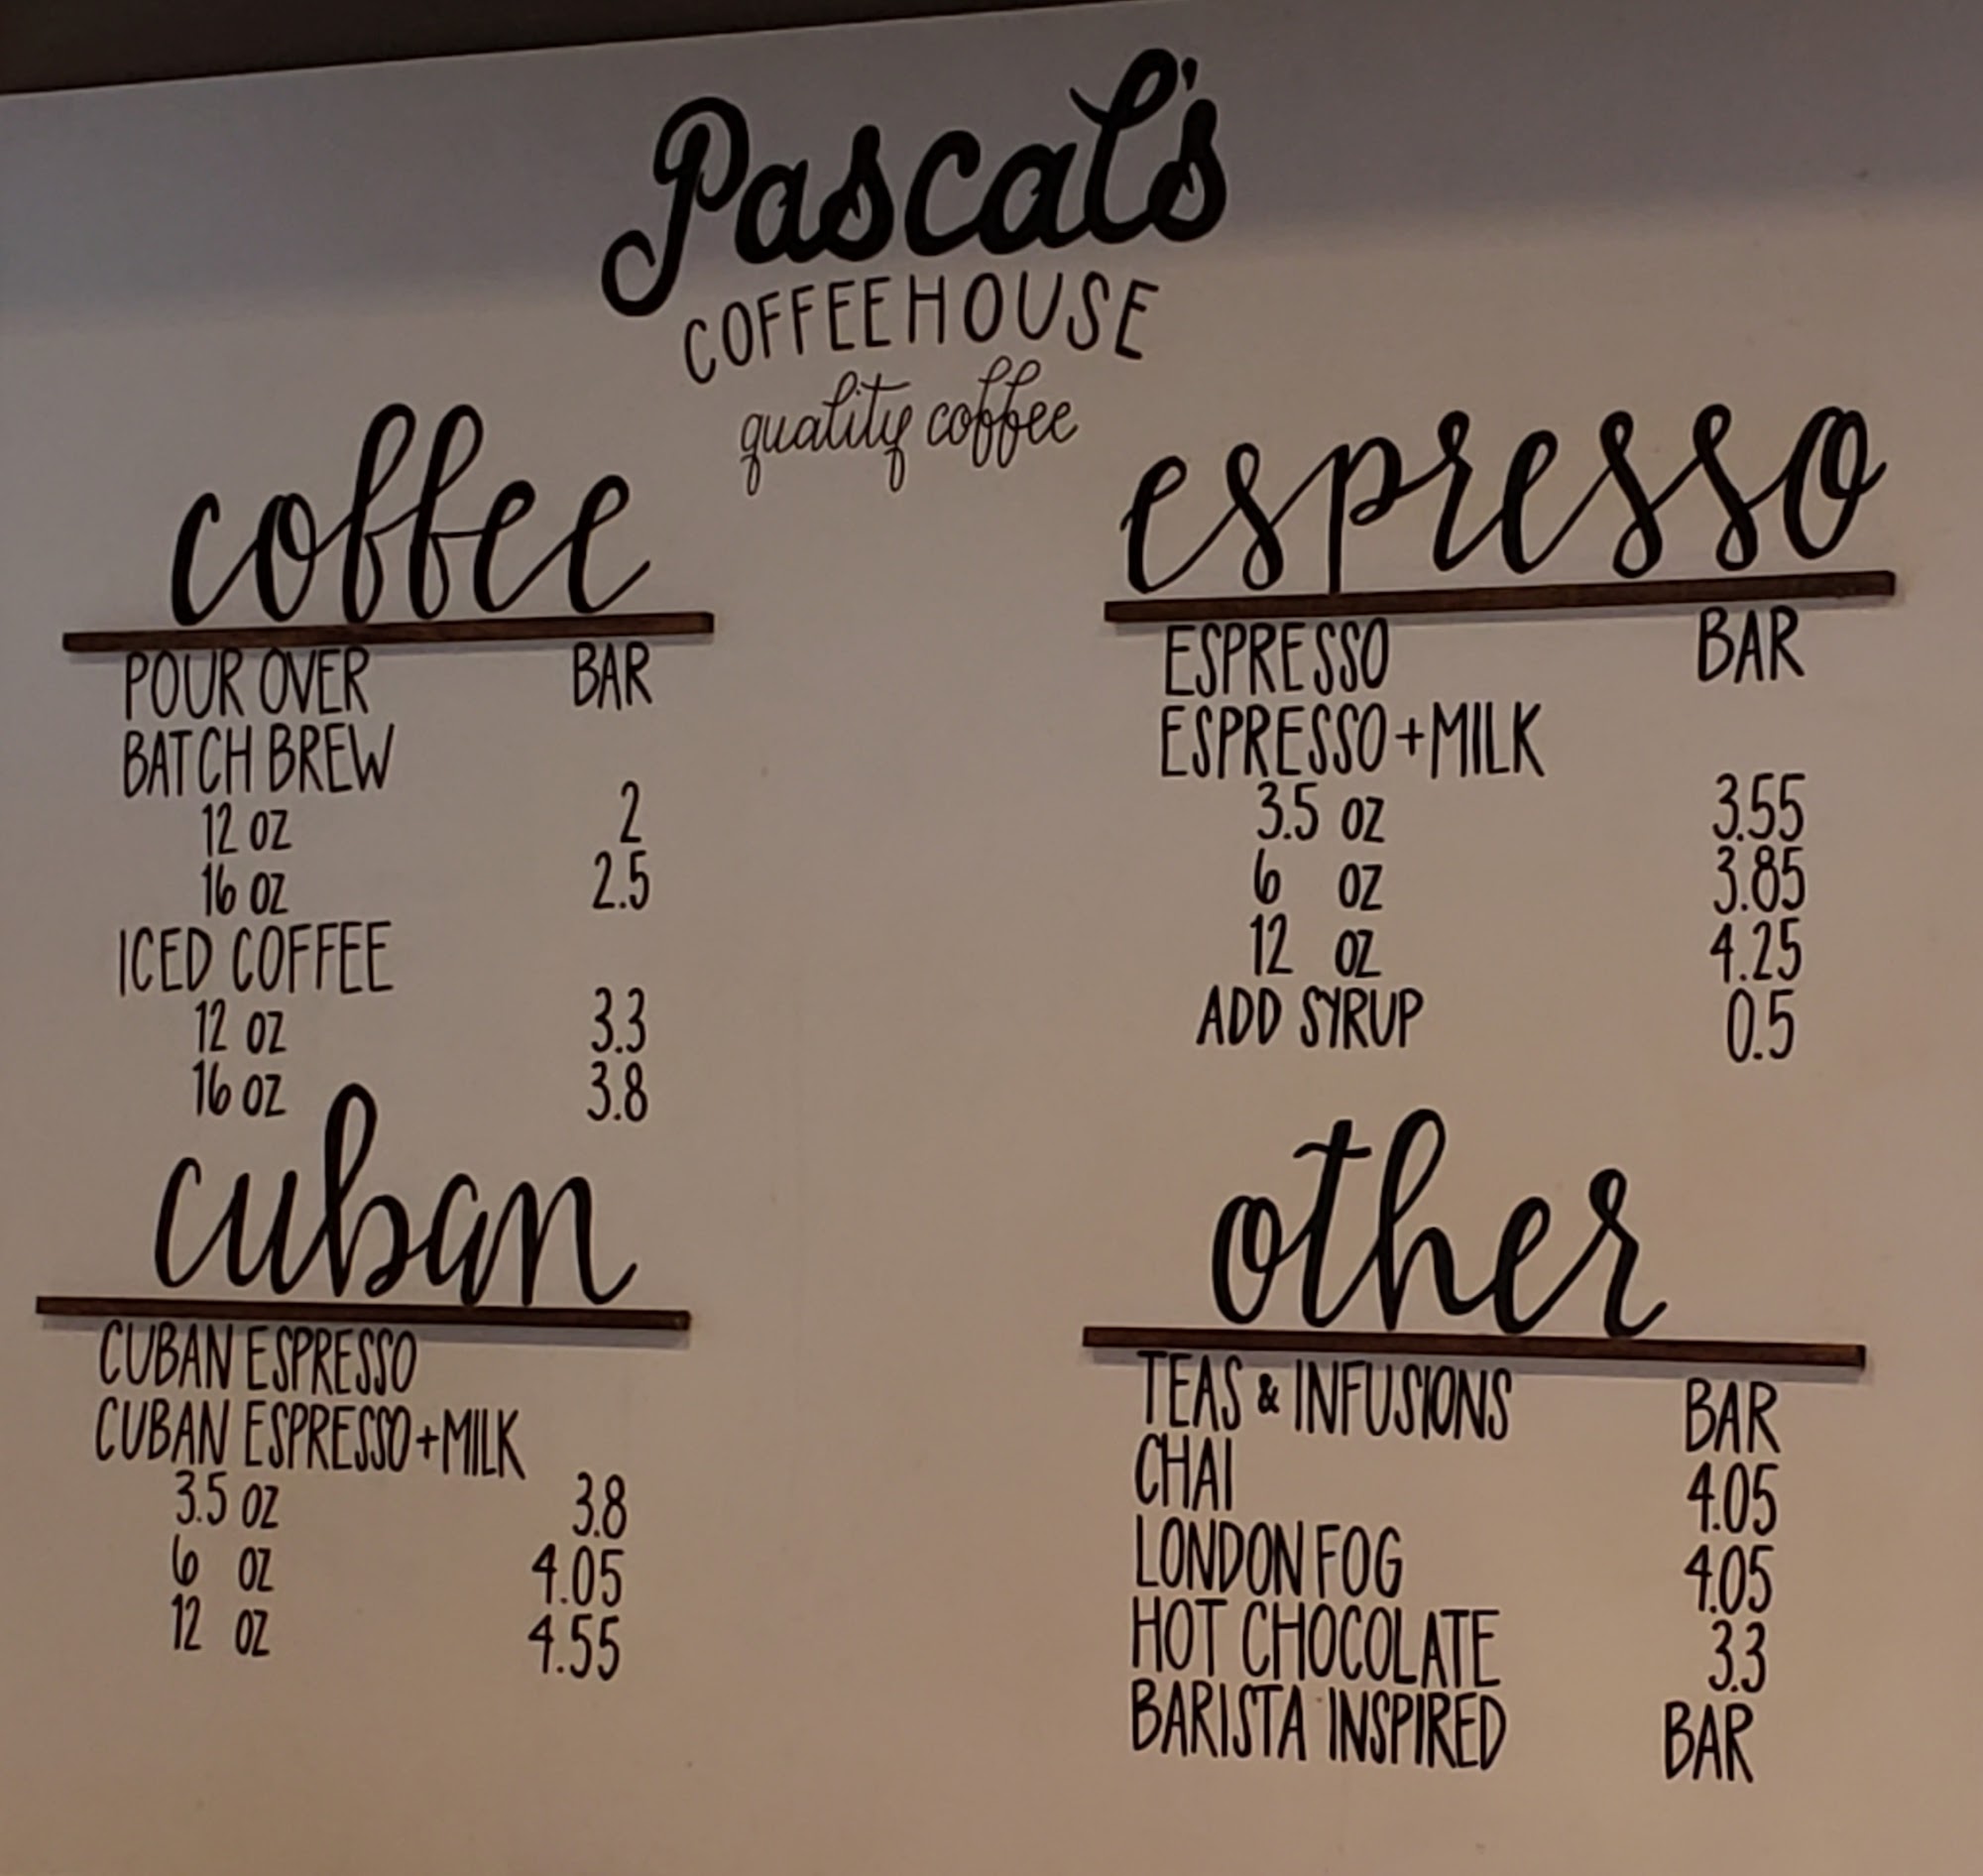 Pascal's
COFFEEHOUSE
quality coffee
coffee
POUR OVER BAR
BATCH BREW
12 OZ 2
16 OZ 2.5
ICED COFFEE
12 OZ 3.3
16 OZ 3.8
cuban
CUBAN ESPRESSO
CUBAN ESPRESSO+MILK
3.5 OZ 3.8
6 OZ 4.05
12 OZ 4.55
espresso
ESPRESSO BAR
ESPRESSO+MILK
3.5 OZ 3.55
6 OZ 3.85
12 OZ 4.25
ADD SYRUP 0.5
other
TEAS & INFUSIONS BAR
CHAI 4.05
LONDON FOG 4.05
HOT CHOCOLATE 3.3
BARISTA INSPIRED BAR